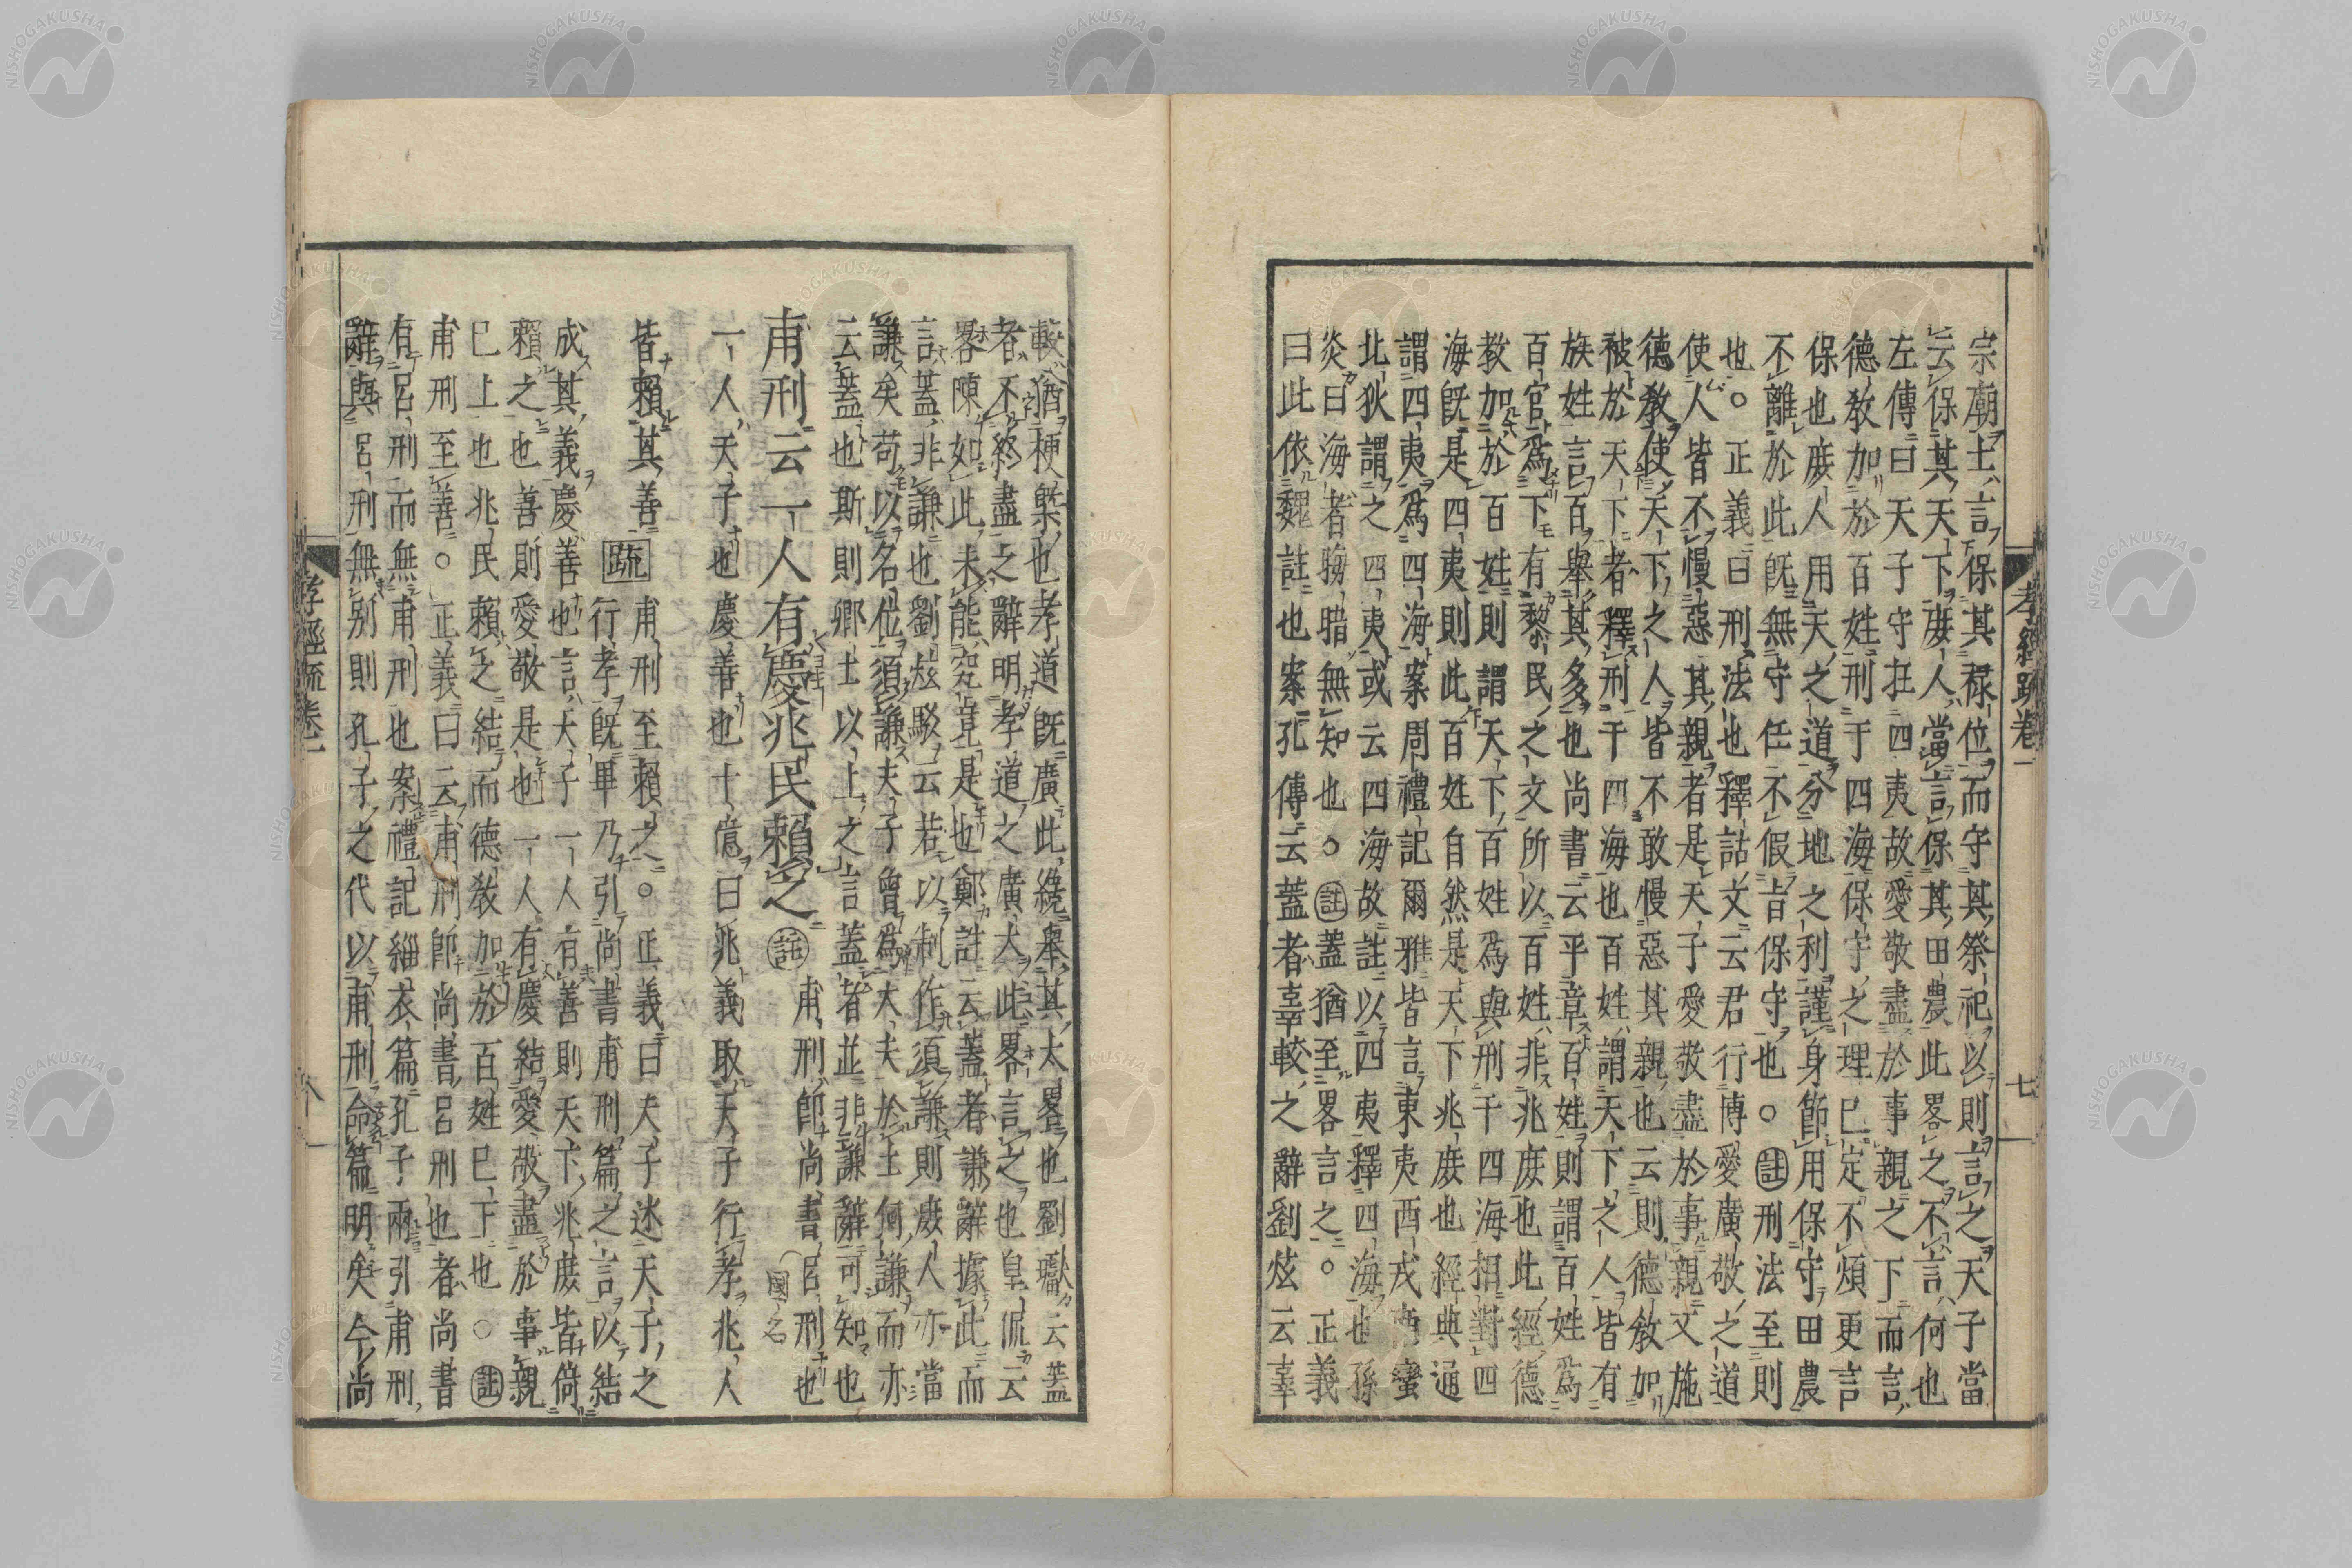 宗廟士言保其祿位而守其祭祀以則言之天子當
云保其天下庶人當言保其田農此畧之不言何也
左傳曰天子守在四夷故愛敬盡於事親之下而言
德教加於百姓刑于四海保守之理已定不煩更言
保也庶人用天之道分地之利謹身節用保守田農
不離於此既無守任不假言保守也○註刑法至則
也○正義曰刑法也釋詁文云君行博愛廣敬之道
使人皆不慢惡其親者是天子愛敬盡於事親又施
德教使天下之人皆不敢慢惡其親也云則德教加
被於天下者釋刑于四海也百姓謂天下之人皆有
族姓言百舉其多也尚書云平章百姓則謂百姓為
百官為下有黎民之文所以百姓非兆庶也此經德
教加於百姓則謂天下百姓為與刑于四海相對四
海既是四夷則此百姓自然是天下兆庶也經典通
謂四夷為四海案周禮記爾雅皆言東夷西戎南蠻
北狄謂之四夷或云四海故註以四夷釋四海也孫
炎曰海者晦暗無知也○註蓋猶至畧言之○正義
曰此依魏註也案孔傳云蓋者辜較之辭劉炫云辜
孝經疏卷一
七
較猶梗槩也孝道既廣此纔舉其大畧也劉瓛云蓋
者不終盡之辭明孝道之廣大此畧言之也皇侃云
畧陳如此未能究竟是也鄭註云蓋者謙辭據此而
言蓋非謙也劉炫駁云若以制作須謙則庶人亦當
謙矣苟以名位須謙夫子曾為大夫於士何謙而亦
云蓋也斯則卿士以上之言蓋者並非謙辭可知也
甫刑云一人有慶兆民賴之註甫刑即尚書呂刑也
國名
一人天子也慶善也十億曰兆義取天子行孝兆人
皆賴其善疏甫刑至賴之○正義曰夫子述天子之
行孝既畢乃引尚書甫刑篇之言以結
成其義慶善也言天子一人有善則天下兆庶皆倚
賴之也善則愛敬是也一人有慶結愛敬盡於事親
已上也兆民賴之結而德教加於百姓已下也○註
甫刑至善○正義曰云甫刑即尚書呂刑也者尚書
有呂刑而無甫刑也案禮記緇衣篇孔子兩引甫刑
辭與呂刑無別則孔子之代以甫刑命篇明矣今尚書
孝經疏卷一
八